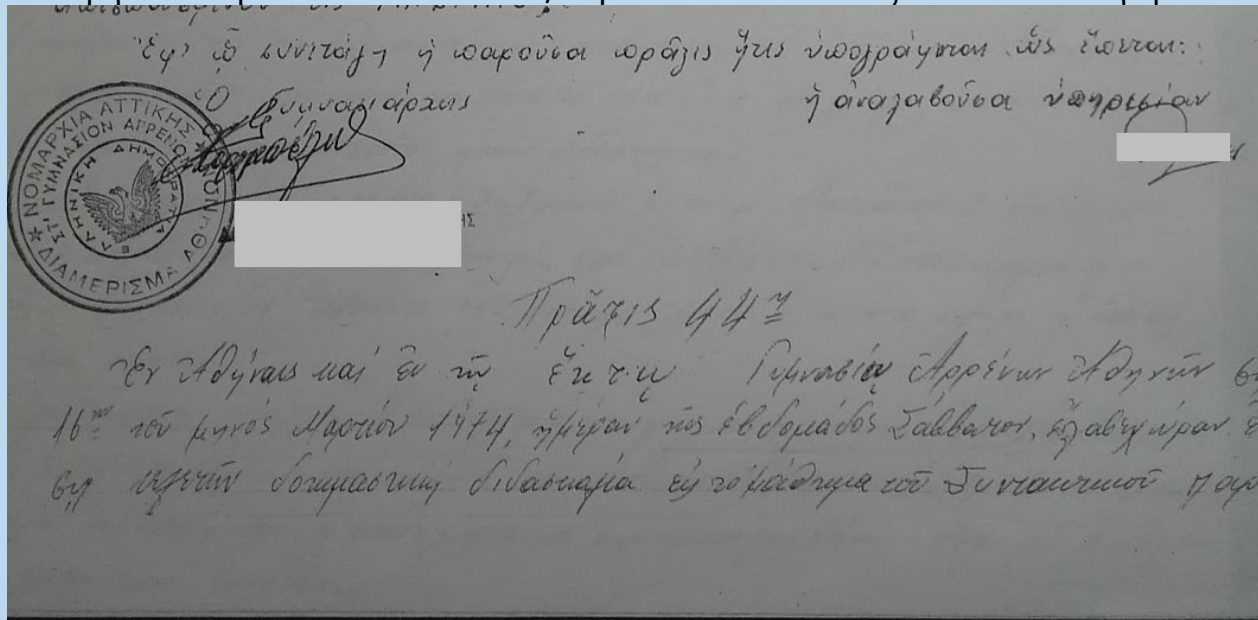 Ἐφ' ᾧ συνετάγη ἡ παροῦσα πρᾶξις ἥτις ὑπογράφεται ὡς ἕπεται:
Ὁ Γυμνασιάρχης
ἡ ἀναλαβοῦσα ὑπηρεσίαν
★ ΝΟΜΑΡΧΙΑ ΑΤΤΙΚΗΣ ★ ΔΙΑΜΕΡΙΣΜΑ
ΣΤ' ΓΥΜΝΑΣΙΟΝ ΑΡΡΕΝΩΝ ΑΘΗΝΩΝ
ΕΛΛΗΝΙΚΗ ΔΗΜΟΚΡΑΤΙΑ
ΗΣ
Πρᾶξις 44η
Ἐν Ἀθήναις καὶ ἐν τῷ ἕκτῳ Γυμνασίῳ Ἀρρένων Ἀθηνῶν
16ην τοῦ μηνὸς Μαρτίου 1974, ἡμέραν τῆς ἑβδομάδος Σάββατον, ἔλαβε χώραν
δοκιμαστικὴ διδασκαλία εἰς τὸ μάθημα τοῦ Συντακτικοῦ